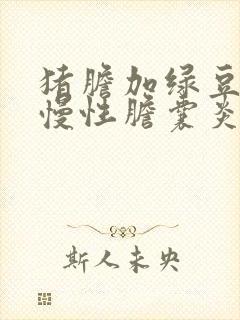 猪胆加绿豆
慢性胆囊炎
斯人未央